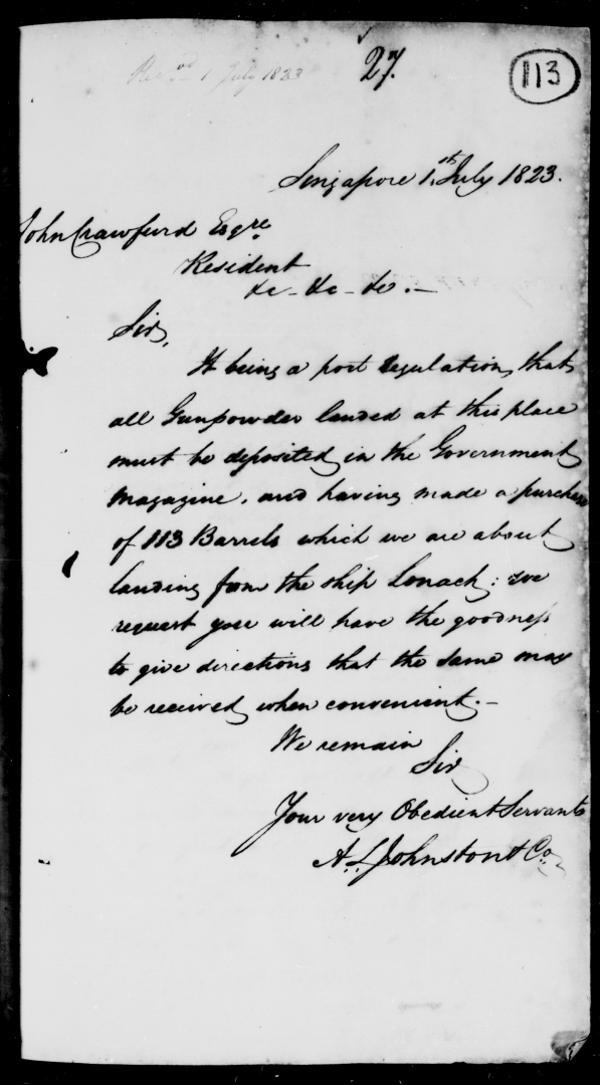 Rec.d 1 July 1823
27.
113
Singapore 1.st July 1823.
John Crawfurd Esqre
Resident
&c - &c - &c. —
Sir,
It being a port regulation, that
all Gunpowder landed at this place
must be deposited in the Government
Magazine, and having made a purchase
of 113 Barrels which we are about
landing from the ship Lonach; we
request you will have the goodness
to give directions that the same may
be received when convenient. —
We remain
Sir
Your very Obedient Servants
A. L. Johnston & Co.